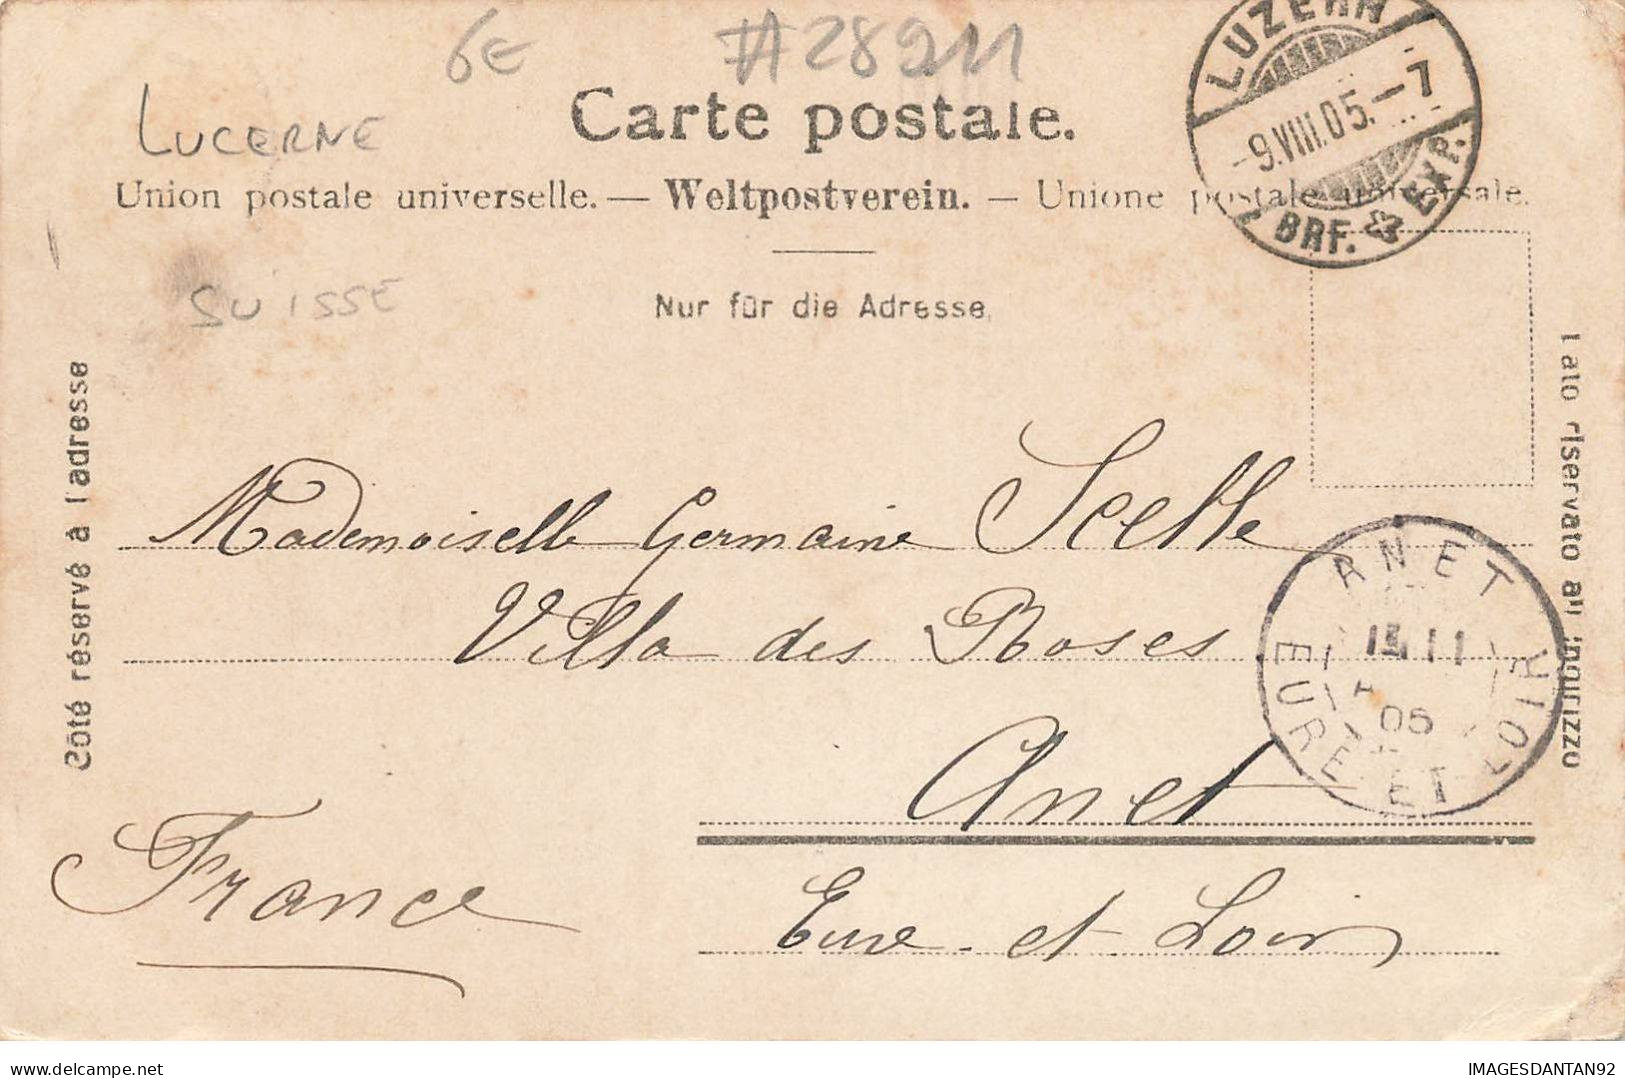 6E #28911
LUZERN
-9.VIII.05.-7
BRF. EXP.
LUCERNE
Carte postale.
Union postale universelle. — Weltpostverein. — Unione postale universale.
SUISSE
Nur für die Adresse.
Côté réservé à l'adresse
Lato riservato all'indirizzo
Mademoiselle Germaine Scelle
Villa des Roses
Anet
Eure et Loir
France
ANET
11
05
EURE ET LOIR
IMAGESDANTAN92